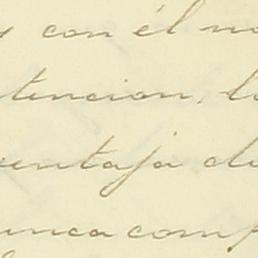 con él no
tencion, lo
ventaja de
unca comp